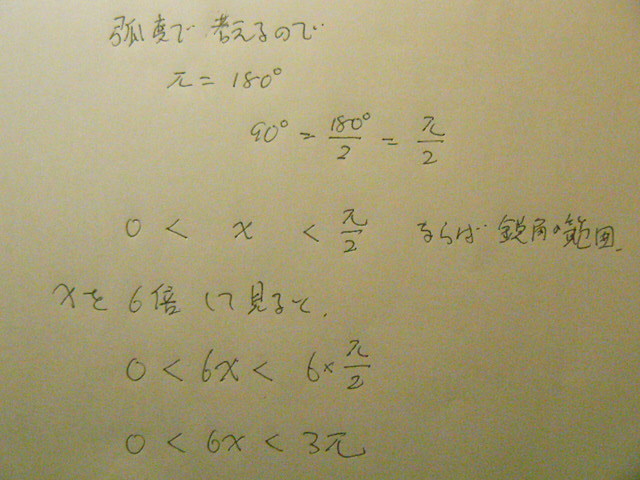 弧度で考えるので
π = 180°
90° = 180°/2 = π/2
0 < x < π/2 ならば 鋭角の範囲.
xを6倍して見ると.
0 < 6x < 6×π/2
0 < 6x < 3π